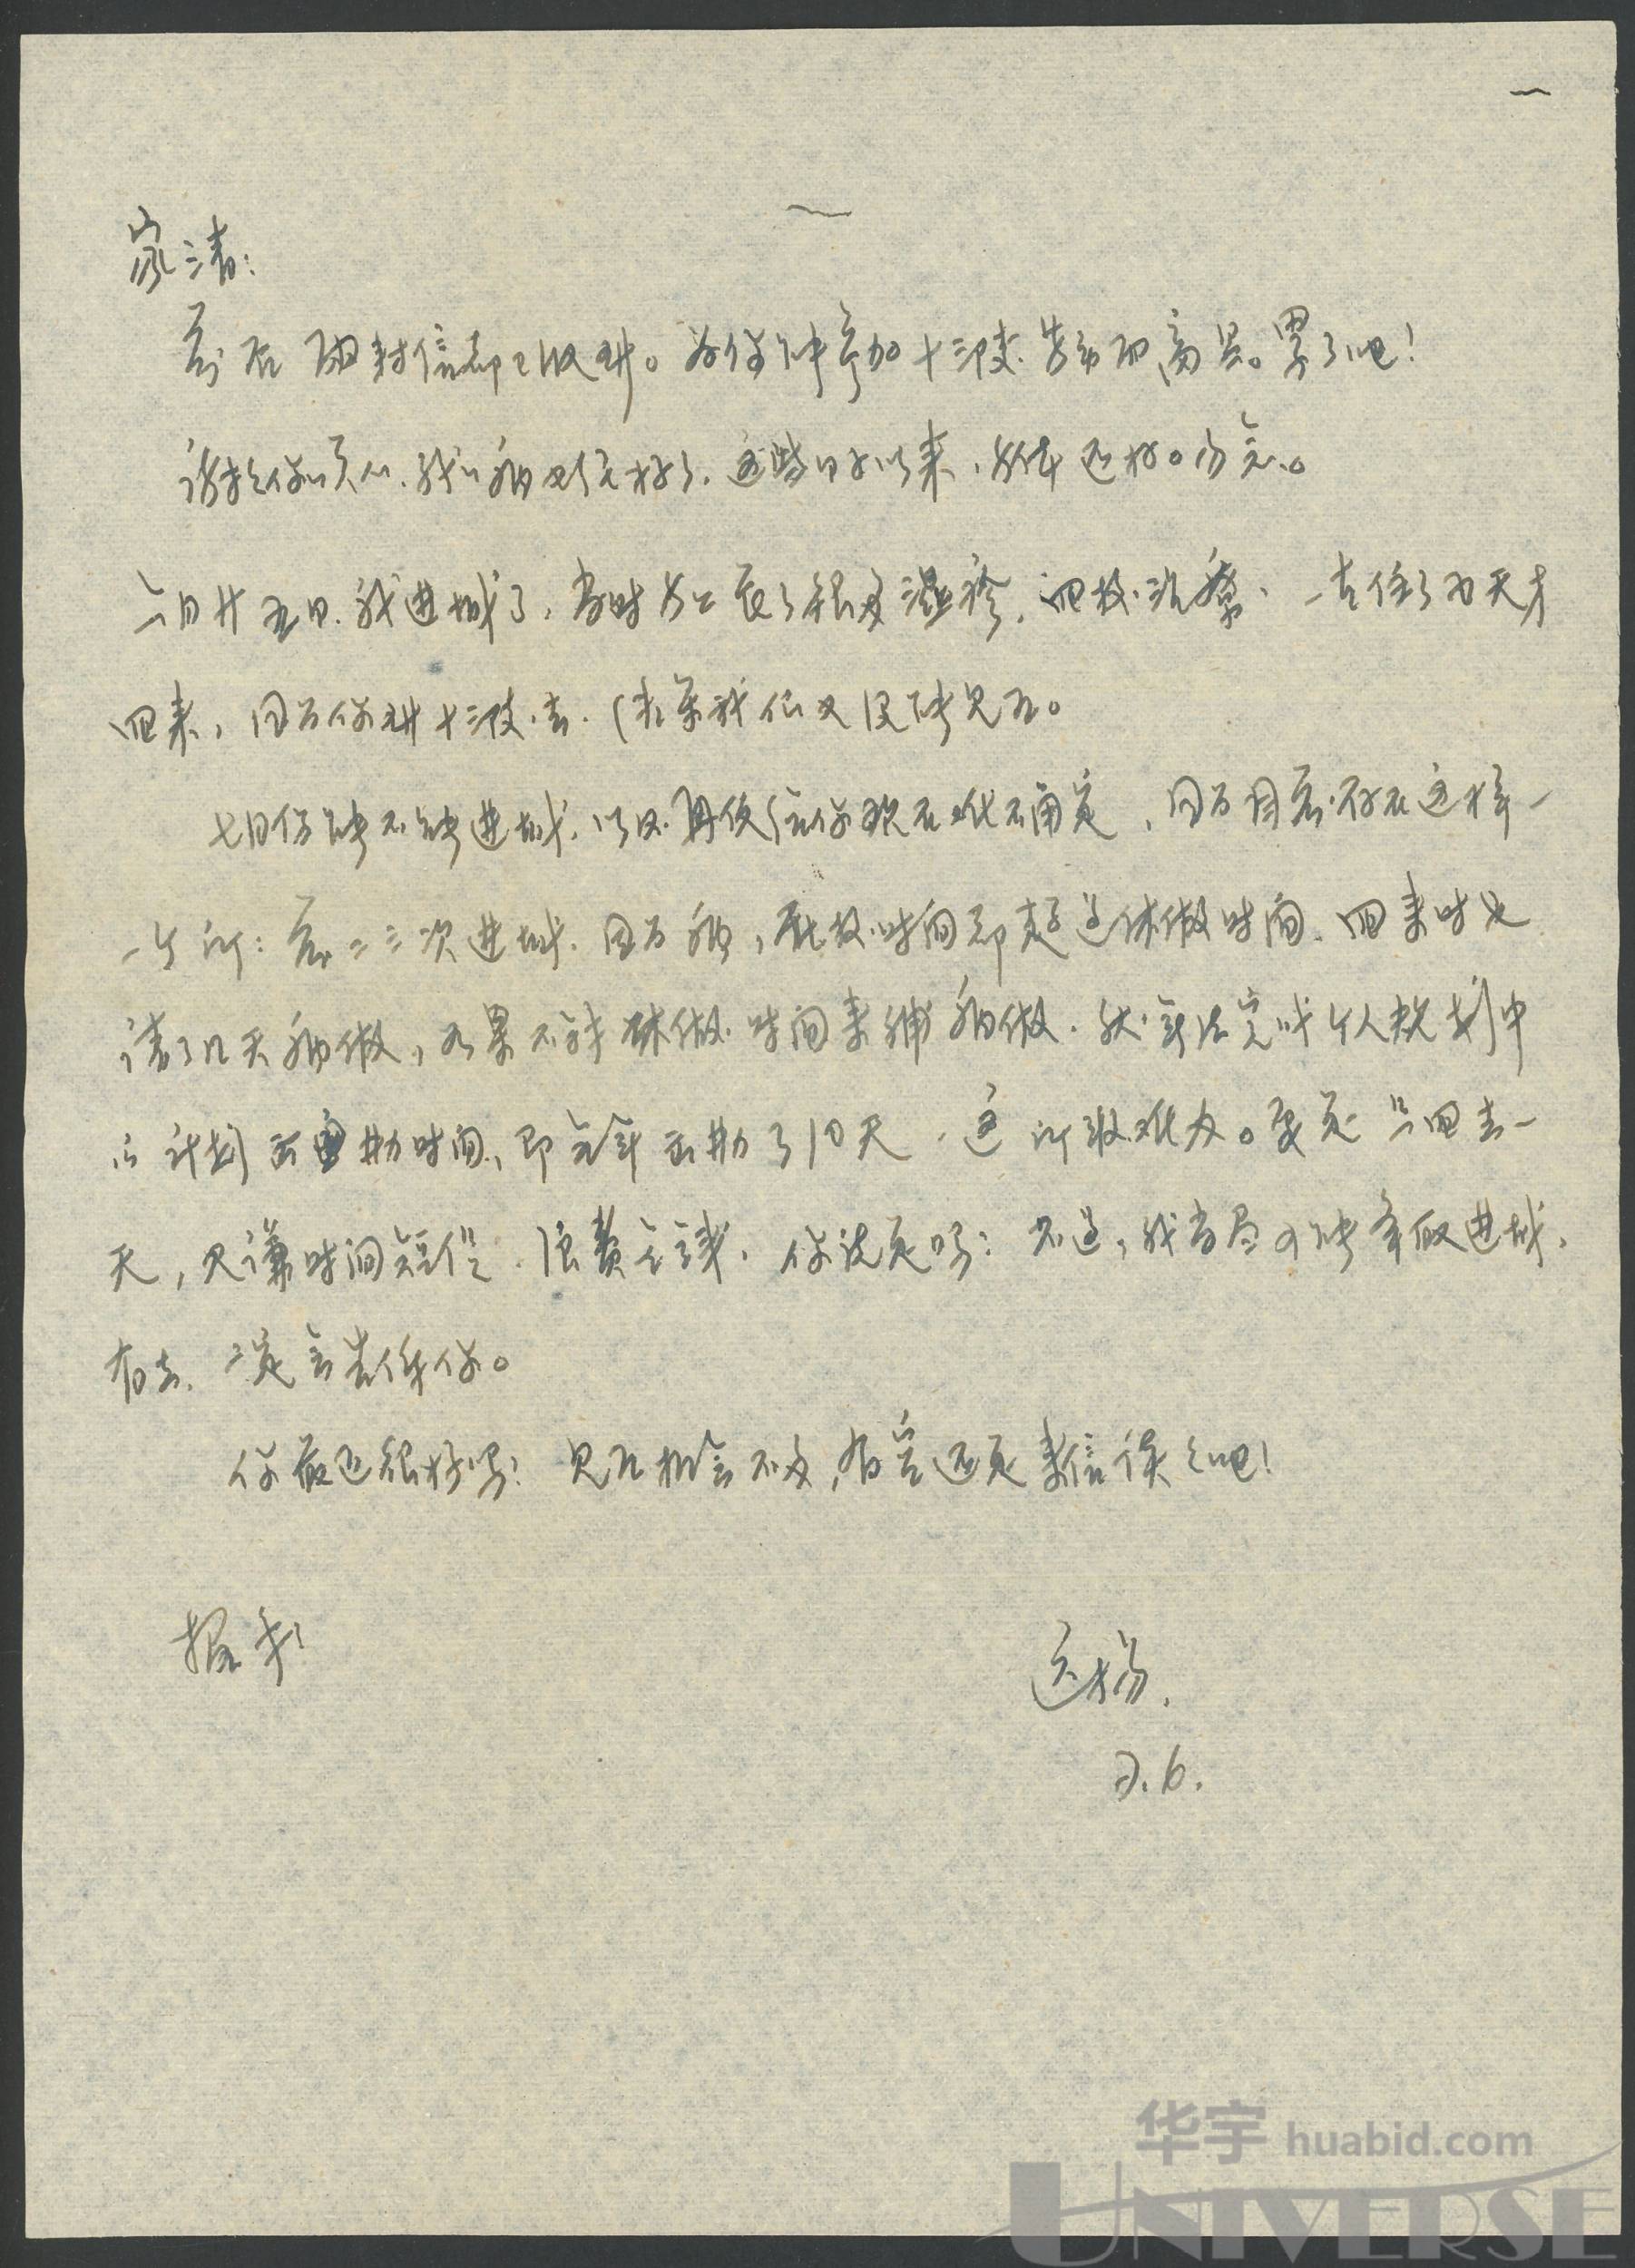 一
家清:
前后两封信都已收到。为你能参加十三陵劳动而高兴。累了吧!
谢谢你的关心,我的病已经完全好了。这些日子以来,身体还好。勿念。
六月廿五日,我进城了,当时身上长了很多湿疹,回校治疗,一直住了四天才
回来,因为你到十三陵去,结果我们又没能见面。
七月份能不能进城,以及再便告你现在难确定,因为目前存在这样一
一个问:前二三次进城,因为病,在校时间都超过休假时间,回来时也
请了几天病假,如果不拿休假时间来补病假,就无法完成个人规划中
的计划出勤时间,即全年出勤了10天,这所很难办。要是只回去一
天,又嫌时间短促,浪费金钱,你说是吗?不过,我当尽可能争取进城,
有去,一定会告诉你。
你最近很好吗?见面机会不多,有空还是来信谈谈吧!
握手!
达杨.
7.6.
华宇 huabid.com
UNIVERSE